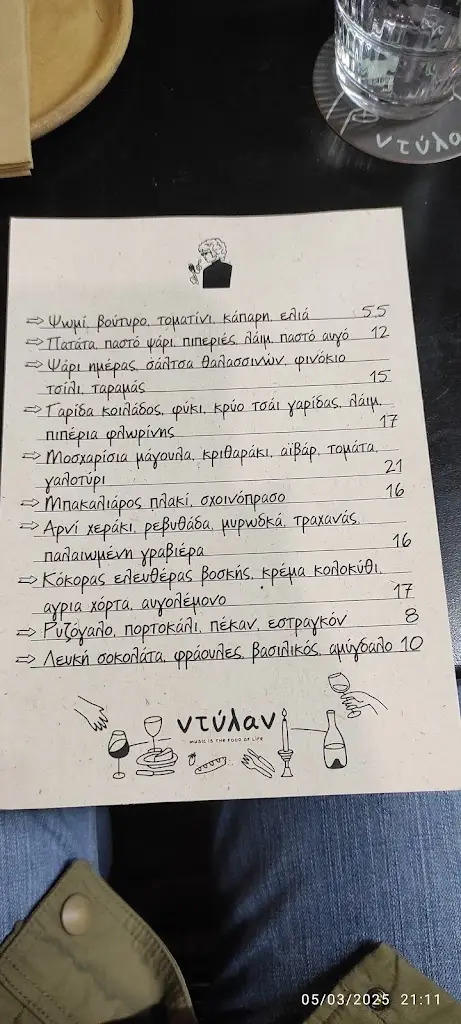 ντύλα
⇨ Ψωμί, βούτυρο, τοματίνι, κάπαρη, ελιά 5.5
⇨ Πατάτα, παστό ψάρι, πιπεριές, λάιμ, παστό αυγό 12
⇨ Ψάρι ημέρας, σάλτσα θαλασσινών, φινόκιο
τσίλι, ταραμάς 15
⇨ Γαρίδα κοιλάδος, φύκι, κρύο τσάι γαρίδας, λάιμ,
πιπέρια φλωρίνης 17
⇨ Μοσχαρίσια μάγουλα, κριθαράκι, αϊβάρ, τομάτα,
γαλοτύρι 21
⇨ Μπακαλιάρος πλακί, σχοινόπρασο 16
⇨ Αρνί χεράκι, ρεβυθάδα, μυρωδκά, τραχανάς,
παλαιωμένη γραβιέρα 16
⇨ Κόκορας ελευθέρας βοσκής, κρέμα κολοκύθι,
αγρια χόρτα, αυγολέμονο 17
⇨ Ρυζόγαλο, πορτοκάλι, πέκαν, εστραγκόν 8
⇨ Λευκή σοκολάτα, φράουλες, βασιλικός, αμύγδαλο 10
ντύλαν
MUSIC IS THE FOOD OF LIFE
05/03/2025 21:11